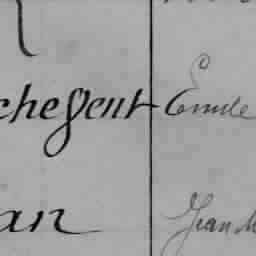 chegent Emile
an Jean M